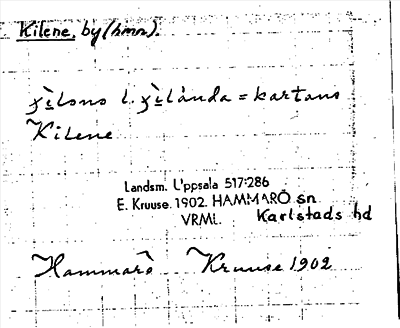 Kilene, by (hmn).
χilsno l. χilånda = kartans
Kilene
Landsm. Uppsala 517:286
E. Kruuse. 1902. HAMMARÖ sn
VRML. Karlstads hd
Hammarö Kruuse 1902